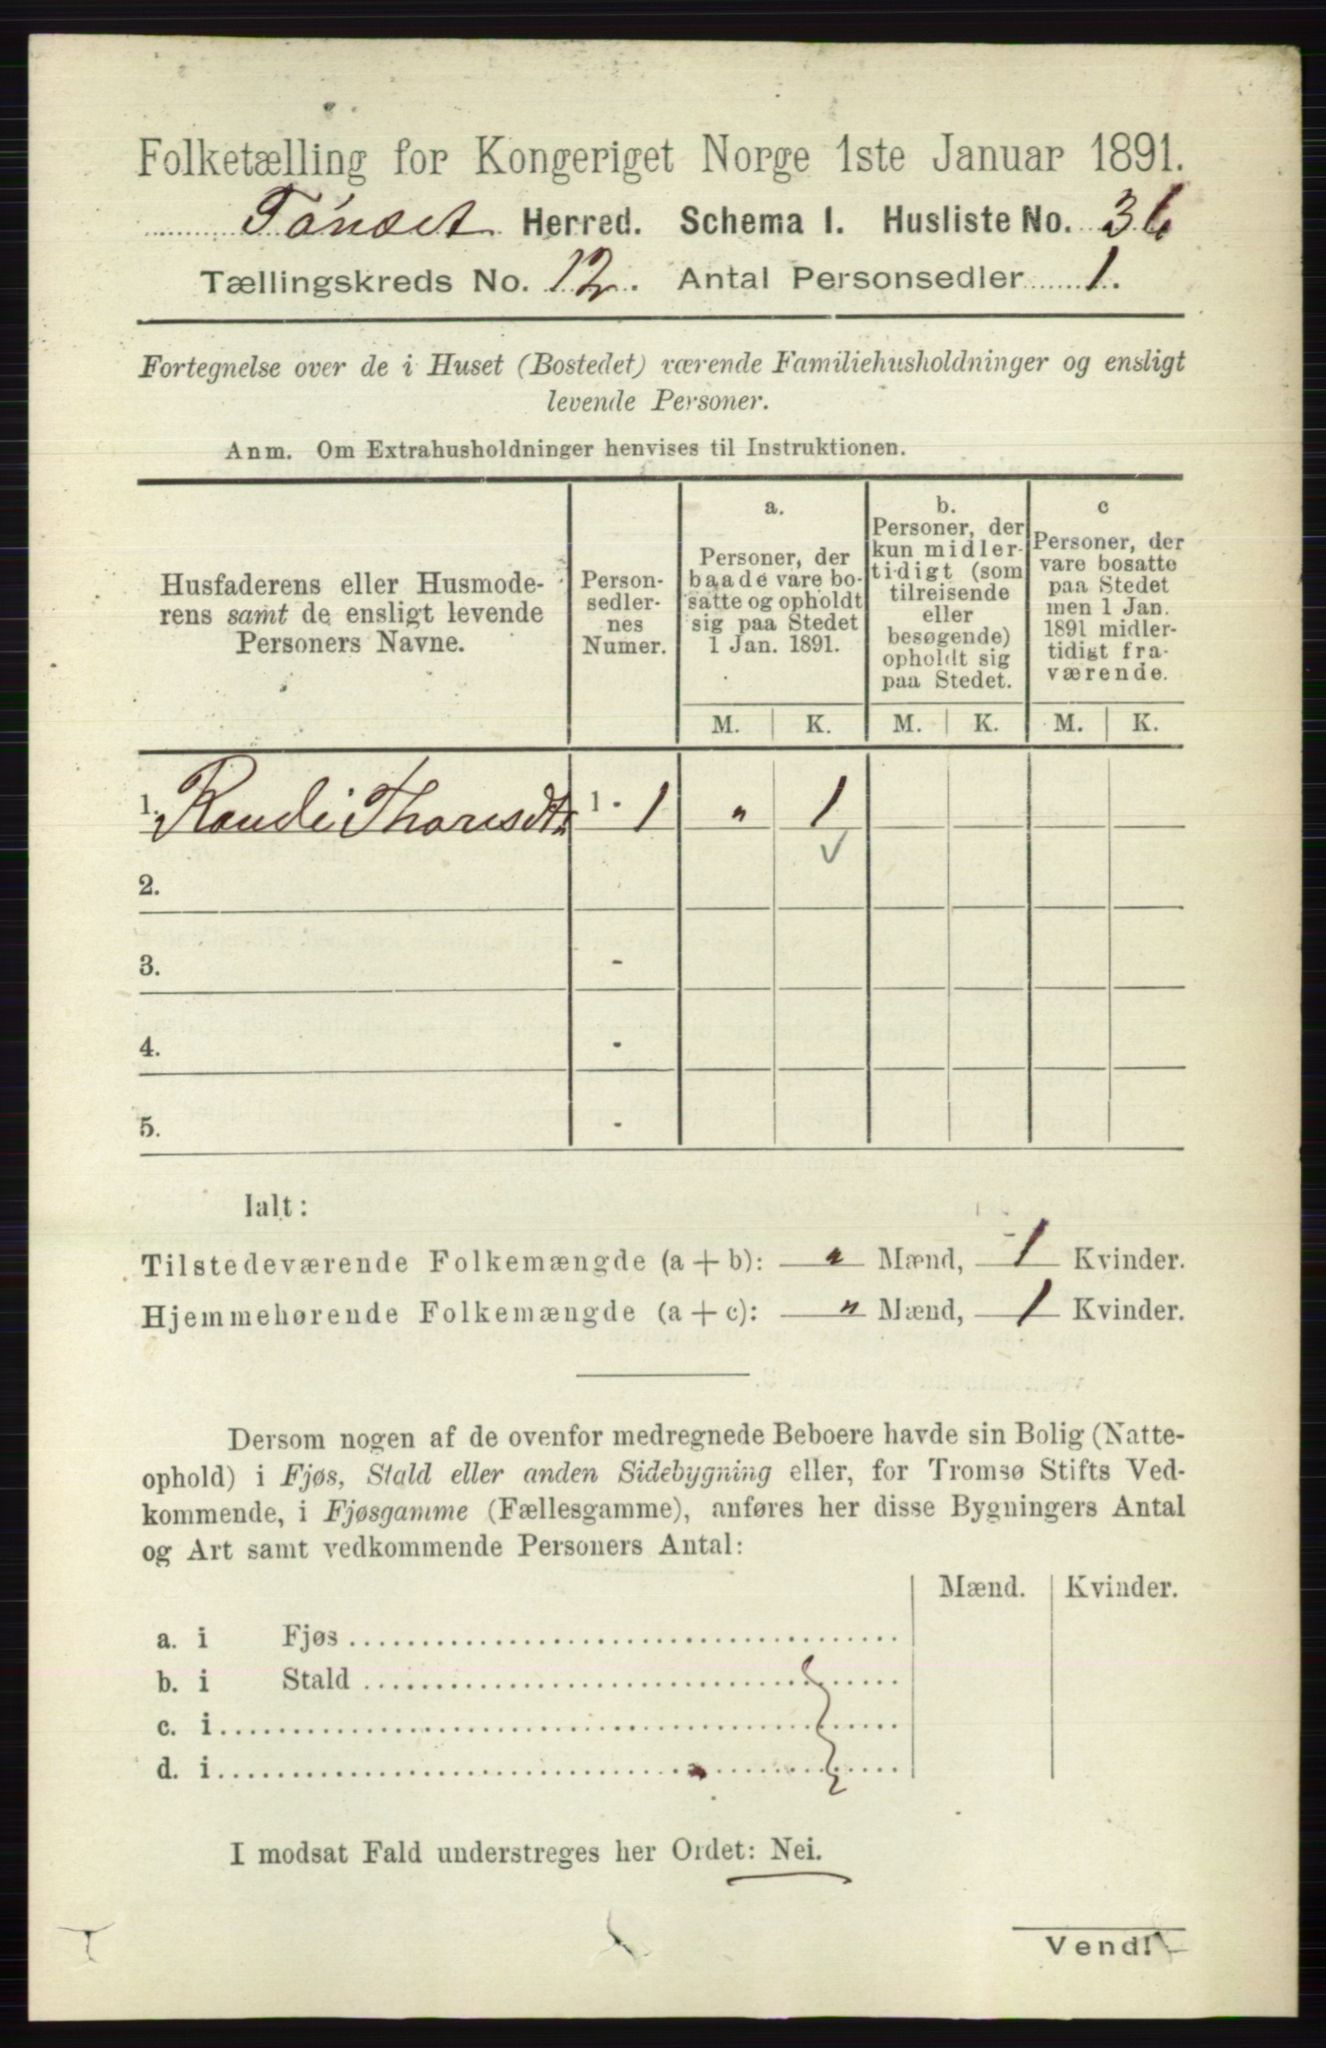 Folketælling for Kongeriget Norge 1ste Januar 1891.
Tønset Herred. Schema I. Husliste No. 36
Tællingskreds No. 12. Antal Personsedler 1.
Fortegnelse over de i Huset (Bostedet) værende Familiehusholdninger og ensligt
levende Personer.
Anm. Om Extrahusholdninger henvises til Instruktionen.
Husfaderens eller Husmode-
rens samt de ensligt levende
Personers Navne.
Person-
sedler-
nes
Numer.
a.
Personer, der
baade vare bo-
satte og opholdt
sig paa Stedet
1 Jan. 1891.
b.
Personer, der
kun midler-
tidigt (som
tilreisende
eller
besøgende)
opholdt sig
paa Stedet.
c
Personer, der
vare bosatte
paa Stedet
men 1 Jan.
1891 midler-
tidigt fra-
værende.
M. K. M. K. M. K.
1. Randi Thoresdtr 1 - 1 " 1
2.
3. -
4. -
5. -
Ialt:
Tilstedeværende Folkemængde (a + b): " Mænd, 1 Kvinder.
Hjemmehørende Folkemængde (a + c): " Mænd, 1 Kvinder.
Dersom nogen af de ovenfor medregnede Beboere havde sin Bolig (Natte-
ophold) i Fjøs, Stald eller anden Sidebygning eller, for Tromsø Stifts Ved-
kommende, i Fjøsgamme (Fællesgamme), anføres her disse Bygningers Antal
og Art samt vedkommende Personers Antal:
Mænd. Kvinder.
a. i Fjøs
b. i Stald
c. i
d. i
I modsat Fald understreges her Ordet: Nei.
Vend!